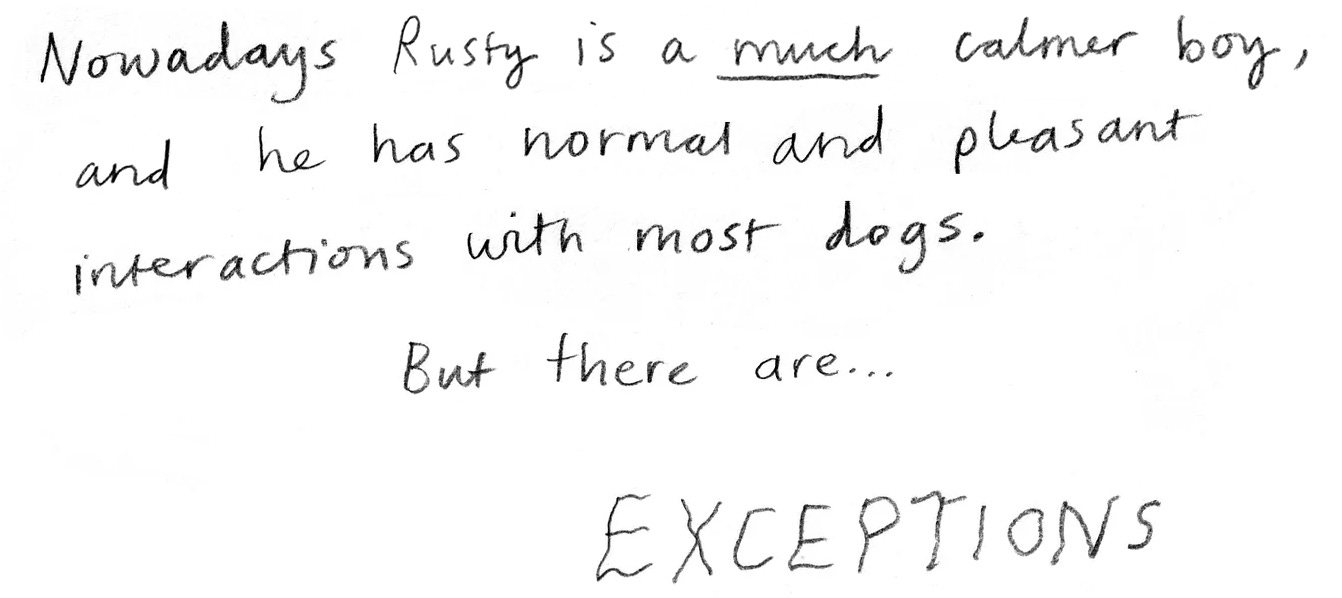 Nowadays Rusty is a much calmer boy,
and he has normal and pleasant
interactions with most dogs.
But there are...
EXCEPTIONS